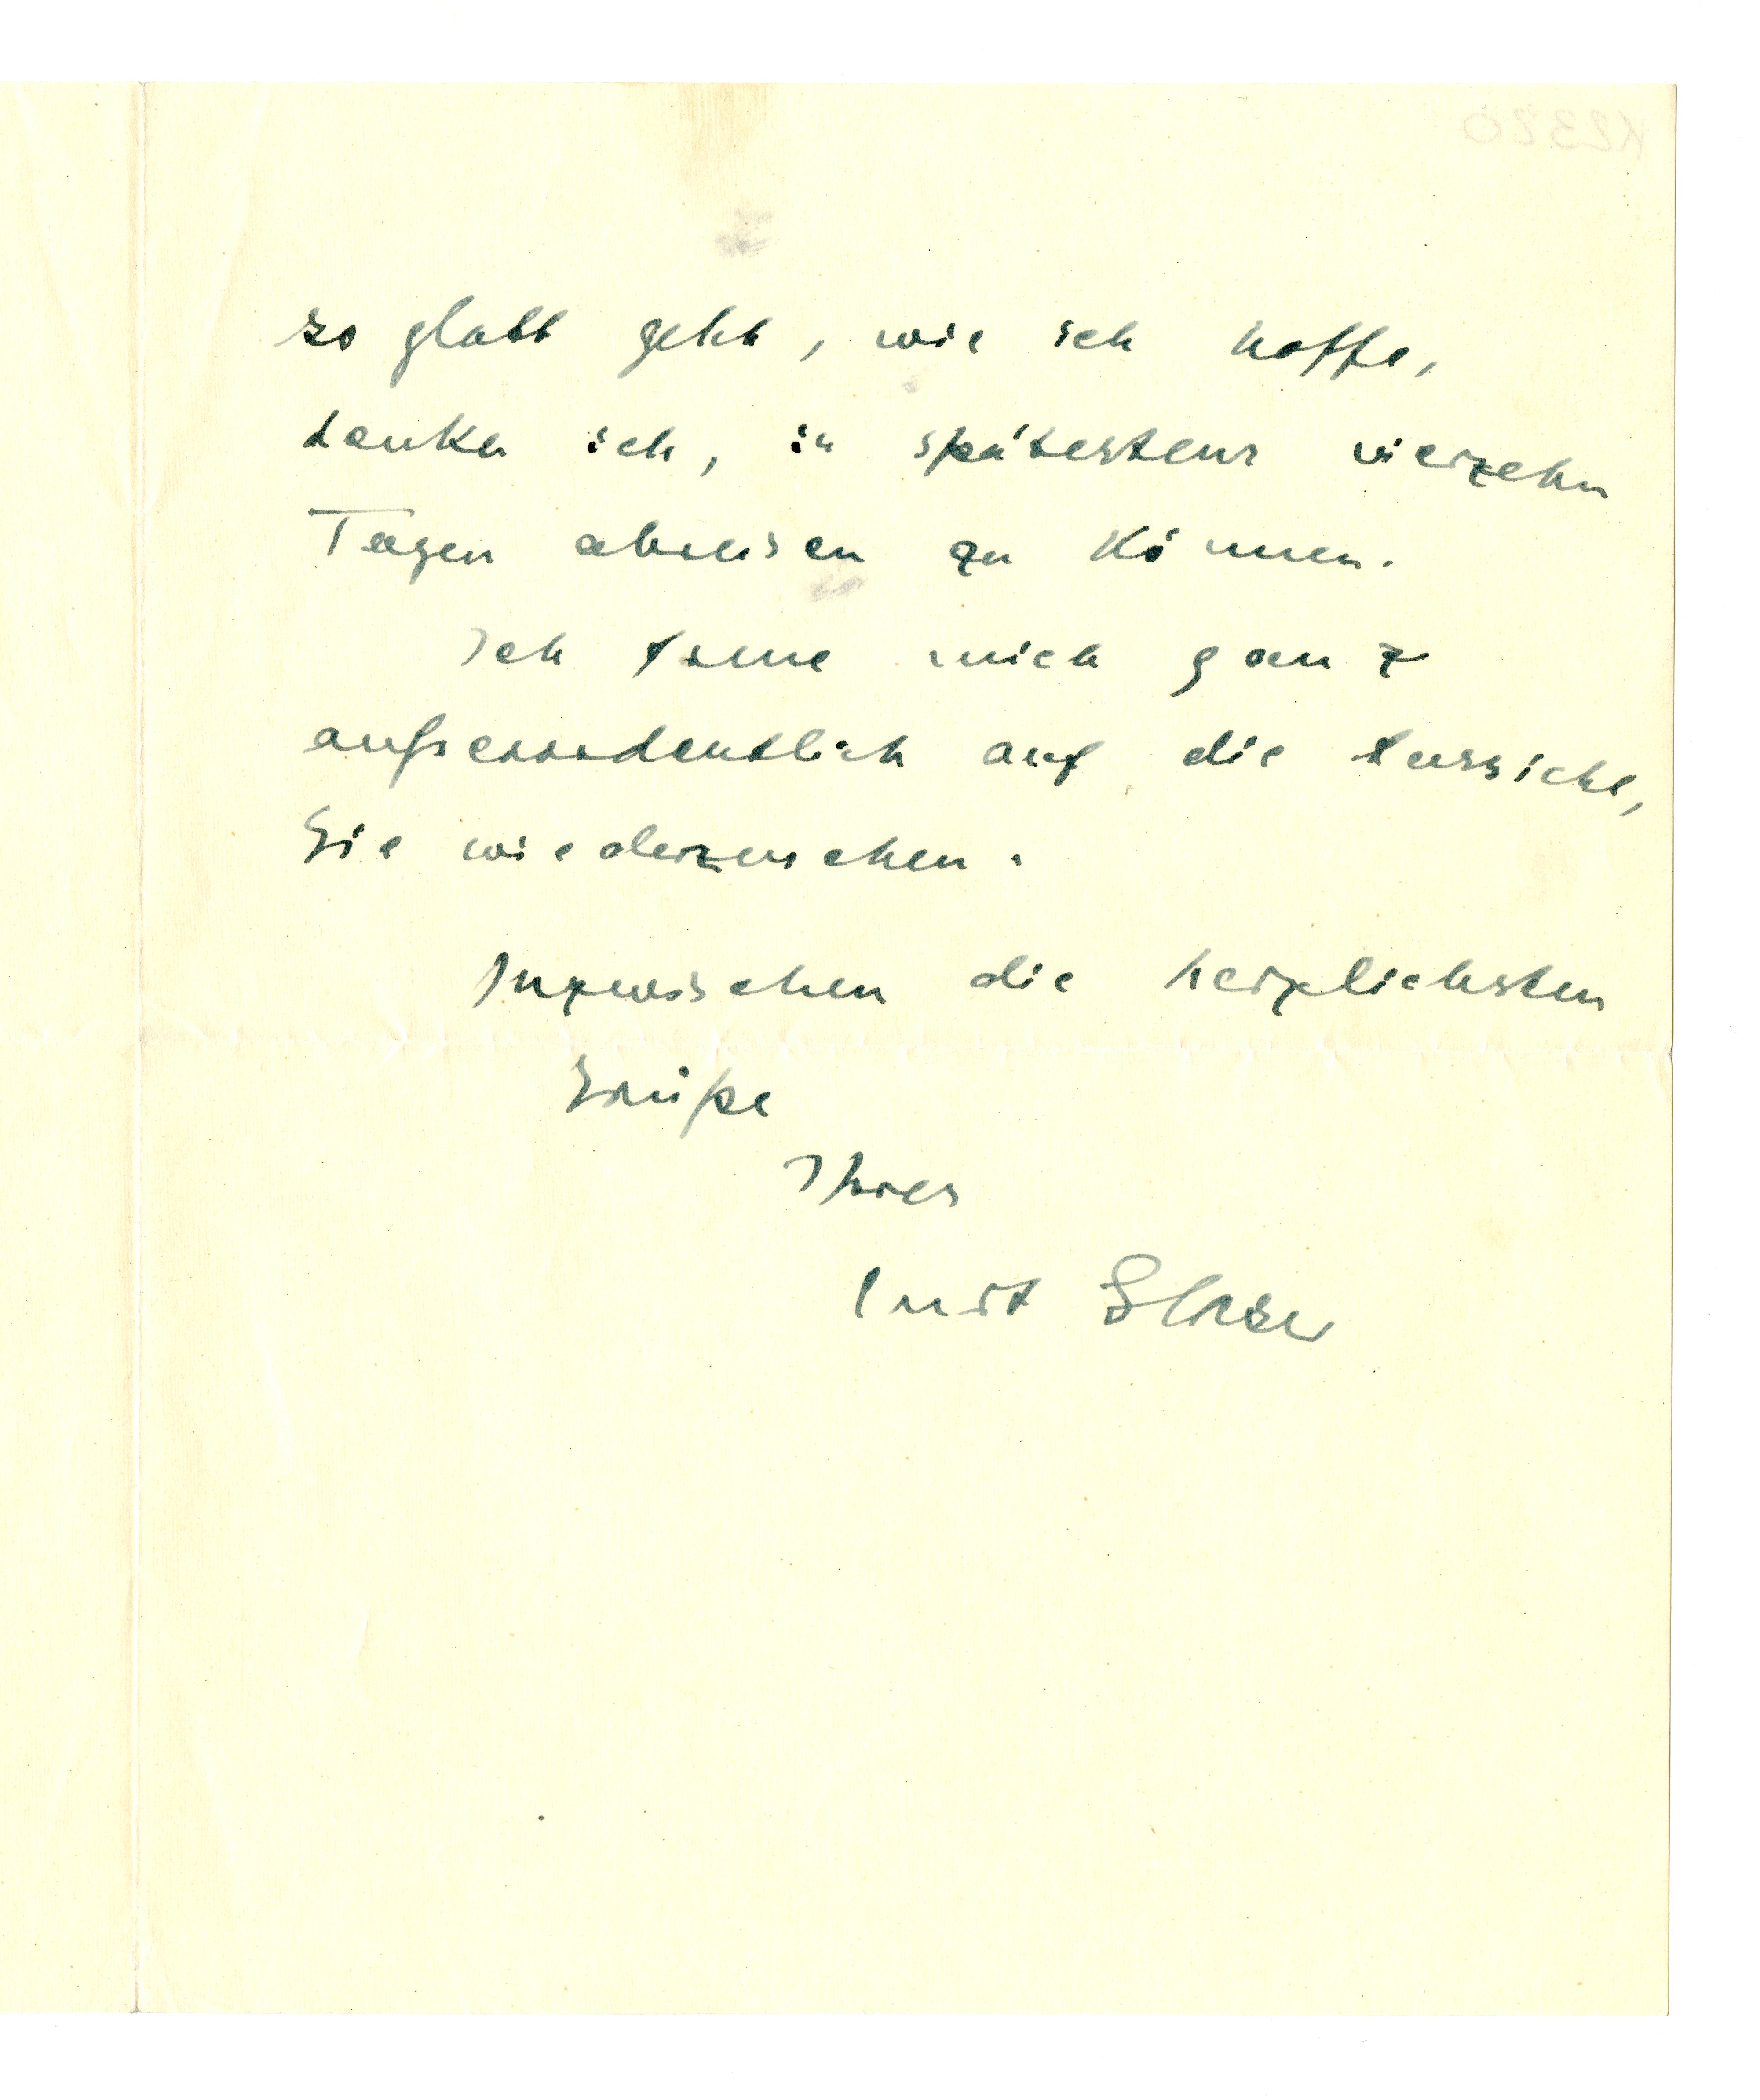 so glatt geht, wie ich hoffe,
denke ich, in spätestens vierzehn
Tagen abreisen zu können.
Ich freue mich ganz
außerordentlich auf die Aussicht,
Sie wiederzusehen.
Inzwischen die herzlichsten
Grüße
Ihres
Ernst Glaser